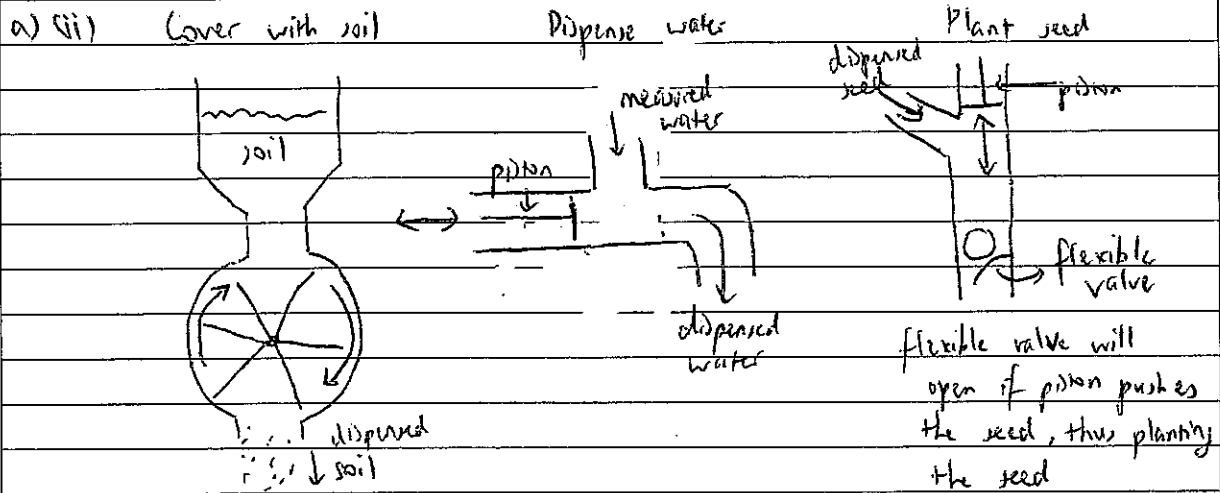 a) (ii) Cover with soil Dispense water Plant seed
soil
dispersed
soil
measured
water
piston
dispensed
water
dispensed
seed
piston
flexible
valve
flexible valve will
open if piston pushes
the seed, thus planting
the seed